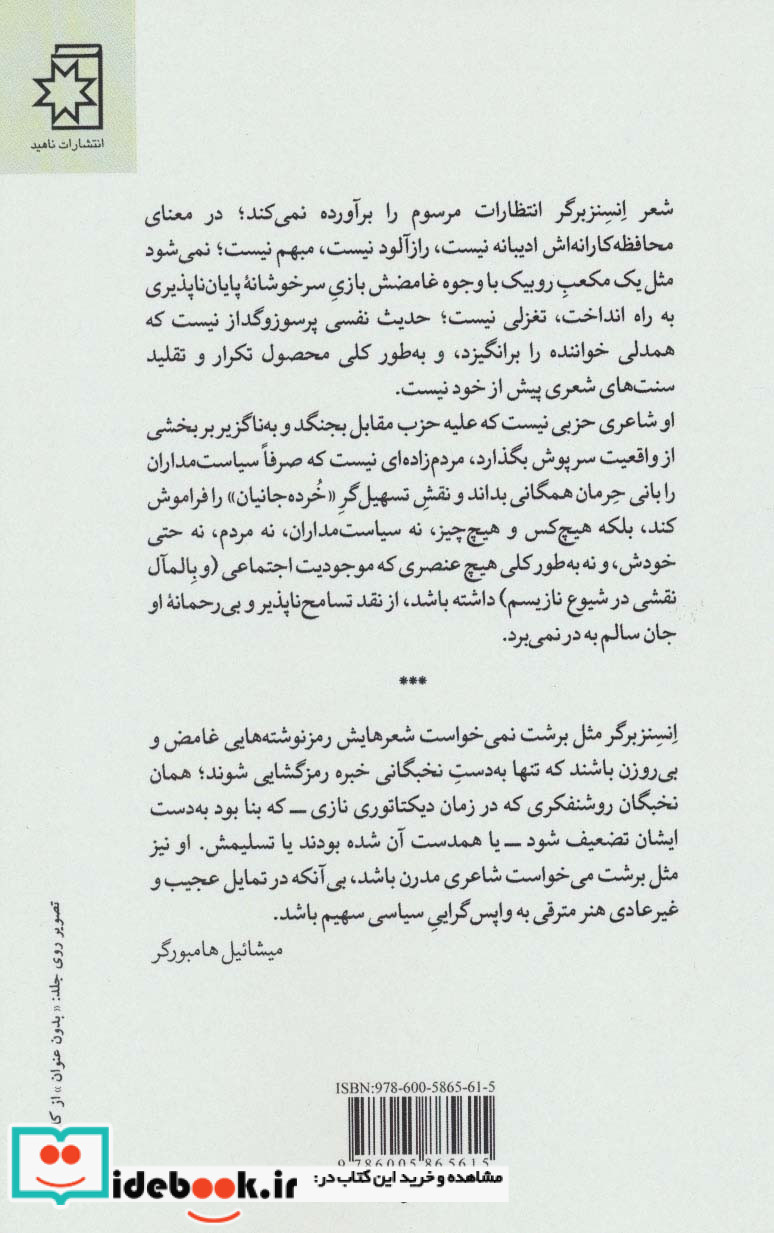 انتشارات ناهید
شعر اِنسِنزبرگر انتظارات مرسوم را برآورده نمی‌کند؛ در معنای
محافظه‌کارانه‌اش ادیبانه نیست، رازآلود نیست، مبهم نیست؛ نمی‌شود
مثل یک مکعبِ روبیک با وجوه غامضش بازیِ سرخوشانهٔ پایان‌ناپذیری
به راه انداخت، تغزلی نیست؛ حدیث نفسی پرسوزوگداز نیست که
همدلی خواننده را برانگیزد، و به‌طور کلی محصول تکرار و تقلید
سنت‌های شعری پیش از خود نیست.
او شاعری حزبی نیست که علیه حزب مقابل بجنگد و به‌ناگزیر بر بخشی
از واقعیت سرپوش بگذارد، مردم‌زاده‌ای نیست که صرفاً سیاست‌مداران
را بانی حِرمان همگانی بداند و نقشِ تسهیل‌گرِ «خُرده‌جانیان» را فراموش
کند، بلکه هیچ‌کس و هیچ‌چیز، نه سیاست‌مداران، نه مردم، نه حتی
خودش، و نه به‌طور کلی هیچ عنصری که موجودیت اجتماعی (و بِالمآل
نقشی در شیوع نازیسم) داشته باشد، از نقد تسامح‌ناپذیر و بی‌رحمانهٔ او
جان سالم به در نمی‌برد.
***
اِنسِنزبرگر مثل برشت نمی‌خواست شعرهایش رمزنوشته‌هایی غامض و
بی‌روزن باشند که تنها به‌دستِ نخبگانی خبره رمزگشایی شوند؛ همان
نخبگان روشنفکری که در زمان دیکتاتوری نازی ــ که بنا بود به‌دست
ایشان تضعیف شود ــ یا همدست آن شده بودند یا تسلیمش. او نیز
مثل برشت می‌خواست شاعری مدرن باشد، بی‌آنکه در تمایل عجیب و
غیرعادی هنر مترقی به واپس‌گراییِ سیاسی سهیم باشد.
میشائیل هامبورگر
تصویر روی جلد: «بدون عنوان» از
ISBN:978-600-5865-61-5
9 786005 865615
مشاهده و خرید این کتاب در:
idebook.ir